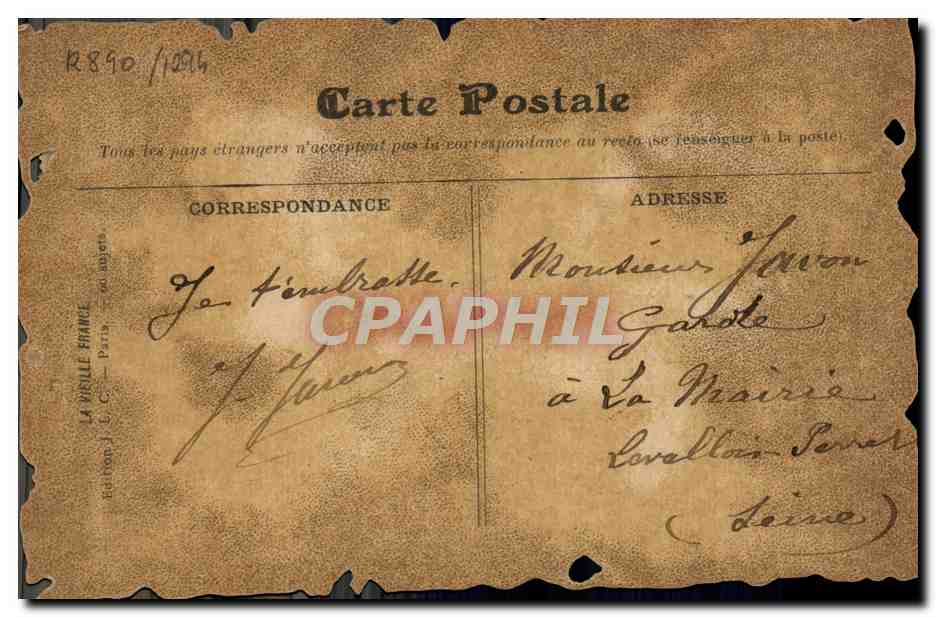 R890/1294
Carte Postale
Tous les pays étrangers n'acceptent pas la correspondance au recto (se renseigner à la poste).
CORRESPONDANCE
ADRESSE
LA VIEILLE FRANCE
Edition J. L. C. — Paris. — 60 sujets.
Je t'embrasse.
J.
Monsieur Javon
Garde
à La Mairie
Levallois Perret
(Seine)
CPAPHIL